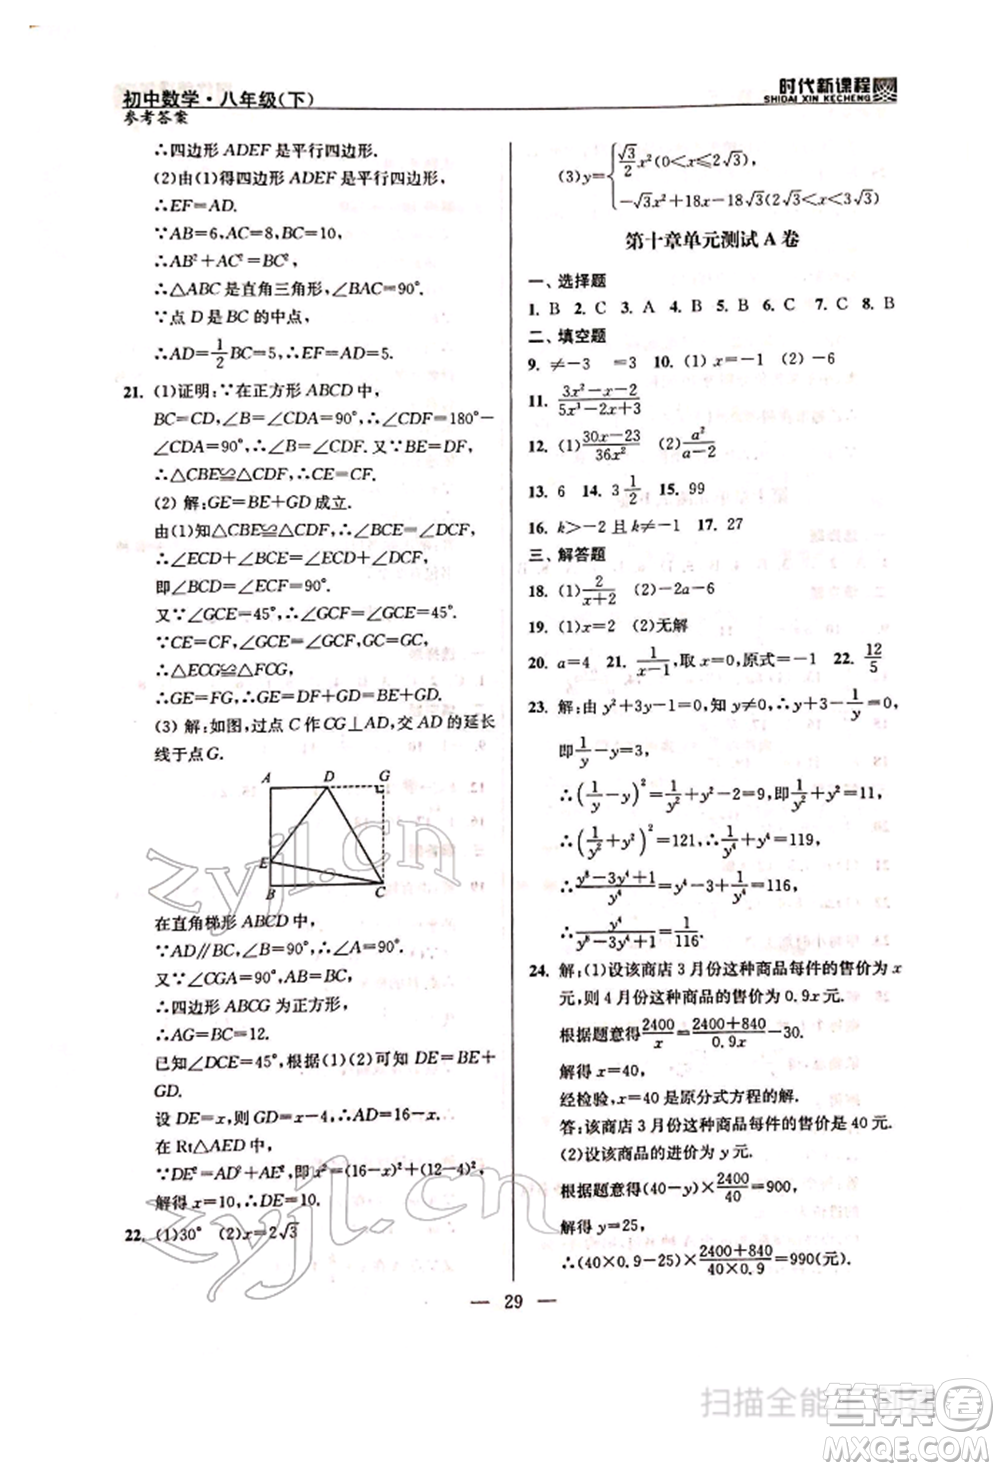 初中数学·八年级(下)
参考答案
时代新课程
SHIDAI XIN KECHENG
∴四边形 ADEF 是平行四边形.
(2)由(1)得四边形 ADEF 是平行四边形,
∴EF=AD.
∵AB=6,AC=8,BC=10,
∴AB²+AC²=BC².
∴△ABC 是直角三角形,∠BAC=90°.
∵点 D 是 BC 的中点,
∴AD=1/2 BC=5,∴EF=AD=5.
21. (1)证明:∵在正方形 ABCD 中,
BC=CD,∠B=∠CDA=90°,∴∠CDF=180°-
∠CDA=90°,∴∠B=∠CDF.又∵BE=DF,
∴△CBE≌△CDF,∴CE=CF.
(2) 解:GE=BE+GD 成立.
由(1)知△CBE≌△CDF,∴∠BCE=∠DCF,
∴∠ECD+∠BCE=∠ECD+∠DCF,
即∠BCD=∠ECF=90°.
又∵∠GCE=45°,∴∠GCF=∠GCE=45°.
∵CE=CF,∠GCE=∠GCF,GC=GC,
∴△ECG≌△FCG,
∴GE=FG,∴GE=DF+GD=BE+GD.
(3) 解:如图,过点 C 作 CG⊥AD,交 AD 的延长
线于点 G.
A D G
E
B C
在直角梯形 ABCD 中,
∵AD∥BC,∠B=90°,∴∠A=90°.
又∵∠CGA=90°,AB=BC,
∴四边形 ABCG 为正方形,
∴AG=BC=12.
已知∠DCE=45°,根据(1)(2)可知 DE=BE+
GD.
设 DE=x,则 GD=x-4,∴AD=16-x.
在 Rt△AED 中,
∵DE²=AD²+AE²,即x²=(16-x)²+(12-4)²,
解得 x=10,∴DE=10.
22. (1)30° (2)x=2√3
(3)y={ √3/2 x²(0<x≤2√3),
-√3x²+18x-18√3(2√3<x<3√3)
第十章单元测试 A 卷
一、选择题
1. B 2. C 3. A 4. B 5. B 6. C 7. C 8. B
二、填空题
9. ≠-3 =3 10. (1)x=-1 (2)-6
11. (3x²-x-2)/(5x³-2x+3)
12. (1)(30x-23)/(36x²) (2)a²/(a-2)
13. 6 14. 3 1/2 15. 99
16. k>-2 且 k≠-1 17. 27
三、解答题
18. (1)2/(x+2) (2)-2a-6
19. (1)x=2 (2)无解
20. a=4 21. 1/(x-1),取 x=0,原式=-1 22. 12/5
23. 解:由 y²+3y-1=0,知 y≠0,∴y+3-1/y=0,
即1/y-y=3,
∴(1/y-y)²=1/y²+y²-2=9,即1/y²+y²=11,
∴(1/y²+y²)²=121,∴1/y⁴+y⁴=119,
∴(y⁸-3y⁴+1)/y⁴=y⁴-3+1/y⁴=116,
∴y⁴/(y⁸-3y⁴+1)=1/116.
24. 解:(1)设该商店 3 月份这种商品每件的售价为 x
元,则 4 月份这种商品的售价为 0.9x 元.
根据题意得2400/x=(2400+840)/0.9x-30.
解得 x=40,
经检验,x=40 是原分式方程的解.
答:该商店 3 月份这种商品的售价是 40 元.
(2)设该商品的进价为 y 元.
根据题意得(40-y)×2400/40=900,
解得 y=25,
∴(40×0.9-25)×(2400+840)/(40×0.9)=990(元).
— 29 —
zyjl.cn
zyjl.cn
扫描全能王 创建
答案圈
MXQE.COM